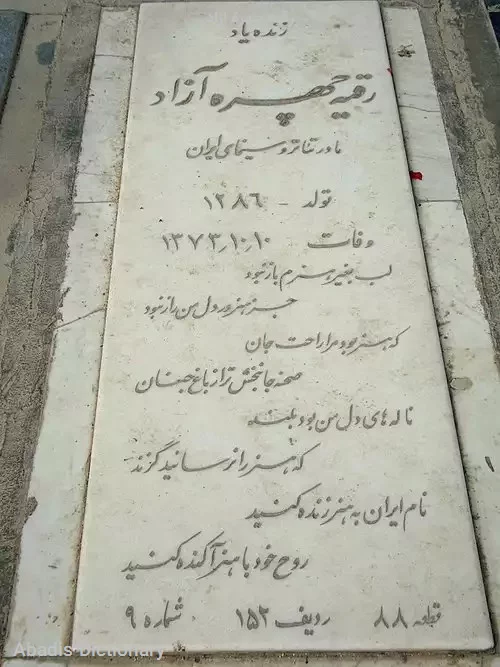 زنده یاد
رقیه چهره آزاد
مادر تئاتر و سینمای ایران
تولد - ۱۲۸۶
وفات ۱۳۷۳٫۱۰٫۱۰
لب بغیر هنرم باز نبود
جز هنر در دل من راز نبود
که هنر بود مرا راحت جان
صحنه جانبخش تر از باغ جنان
ناله های دل من بود بلند
که هنر را نرسانید گزند
نام ایران به هنر زنده کنید
روح خود با هنر آکنده کنید
قطعه ۸۸ ردیف ۱۵۲ شماره ۹
Abadis-Dictionary